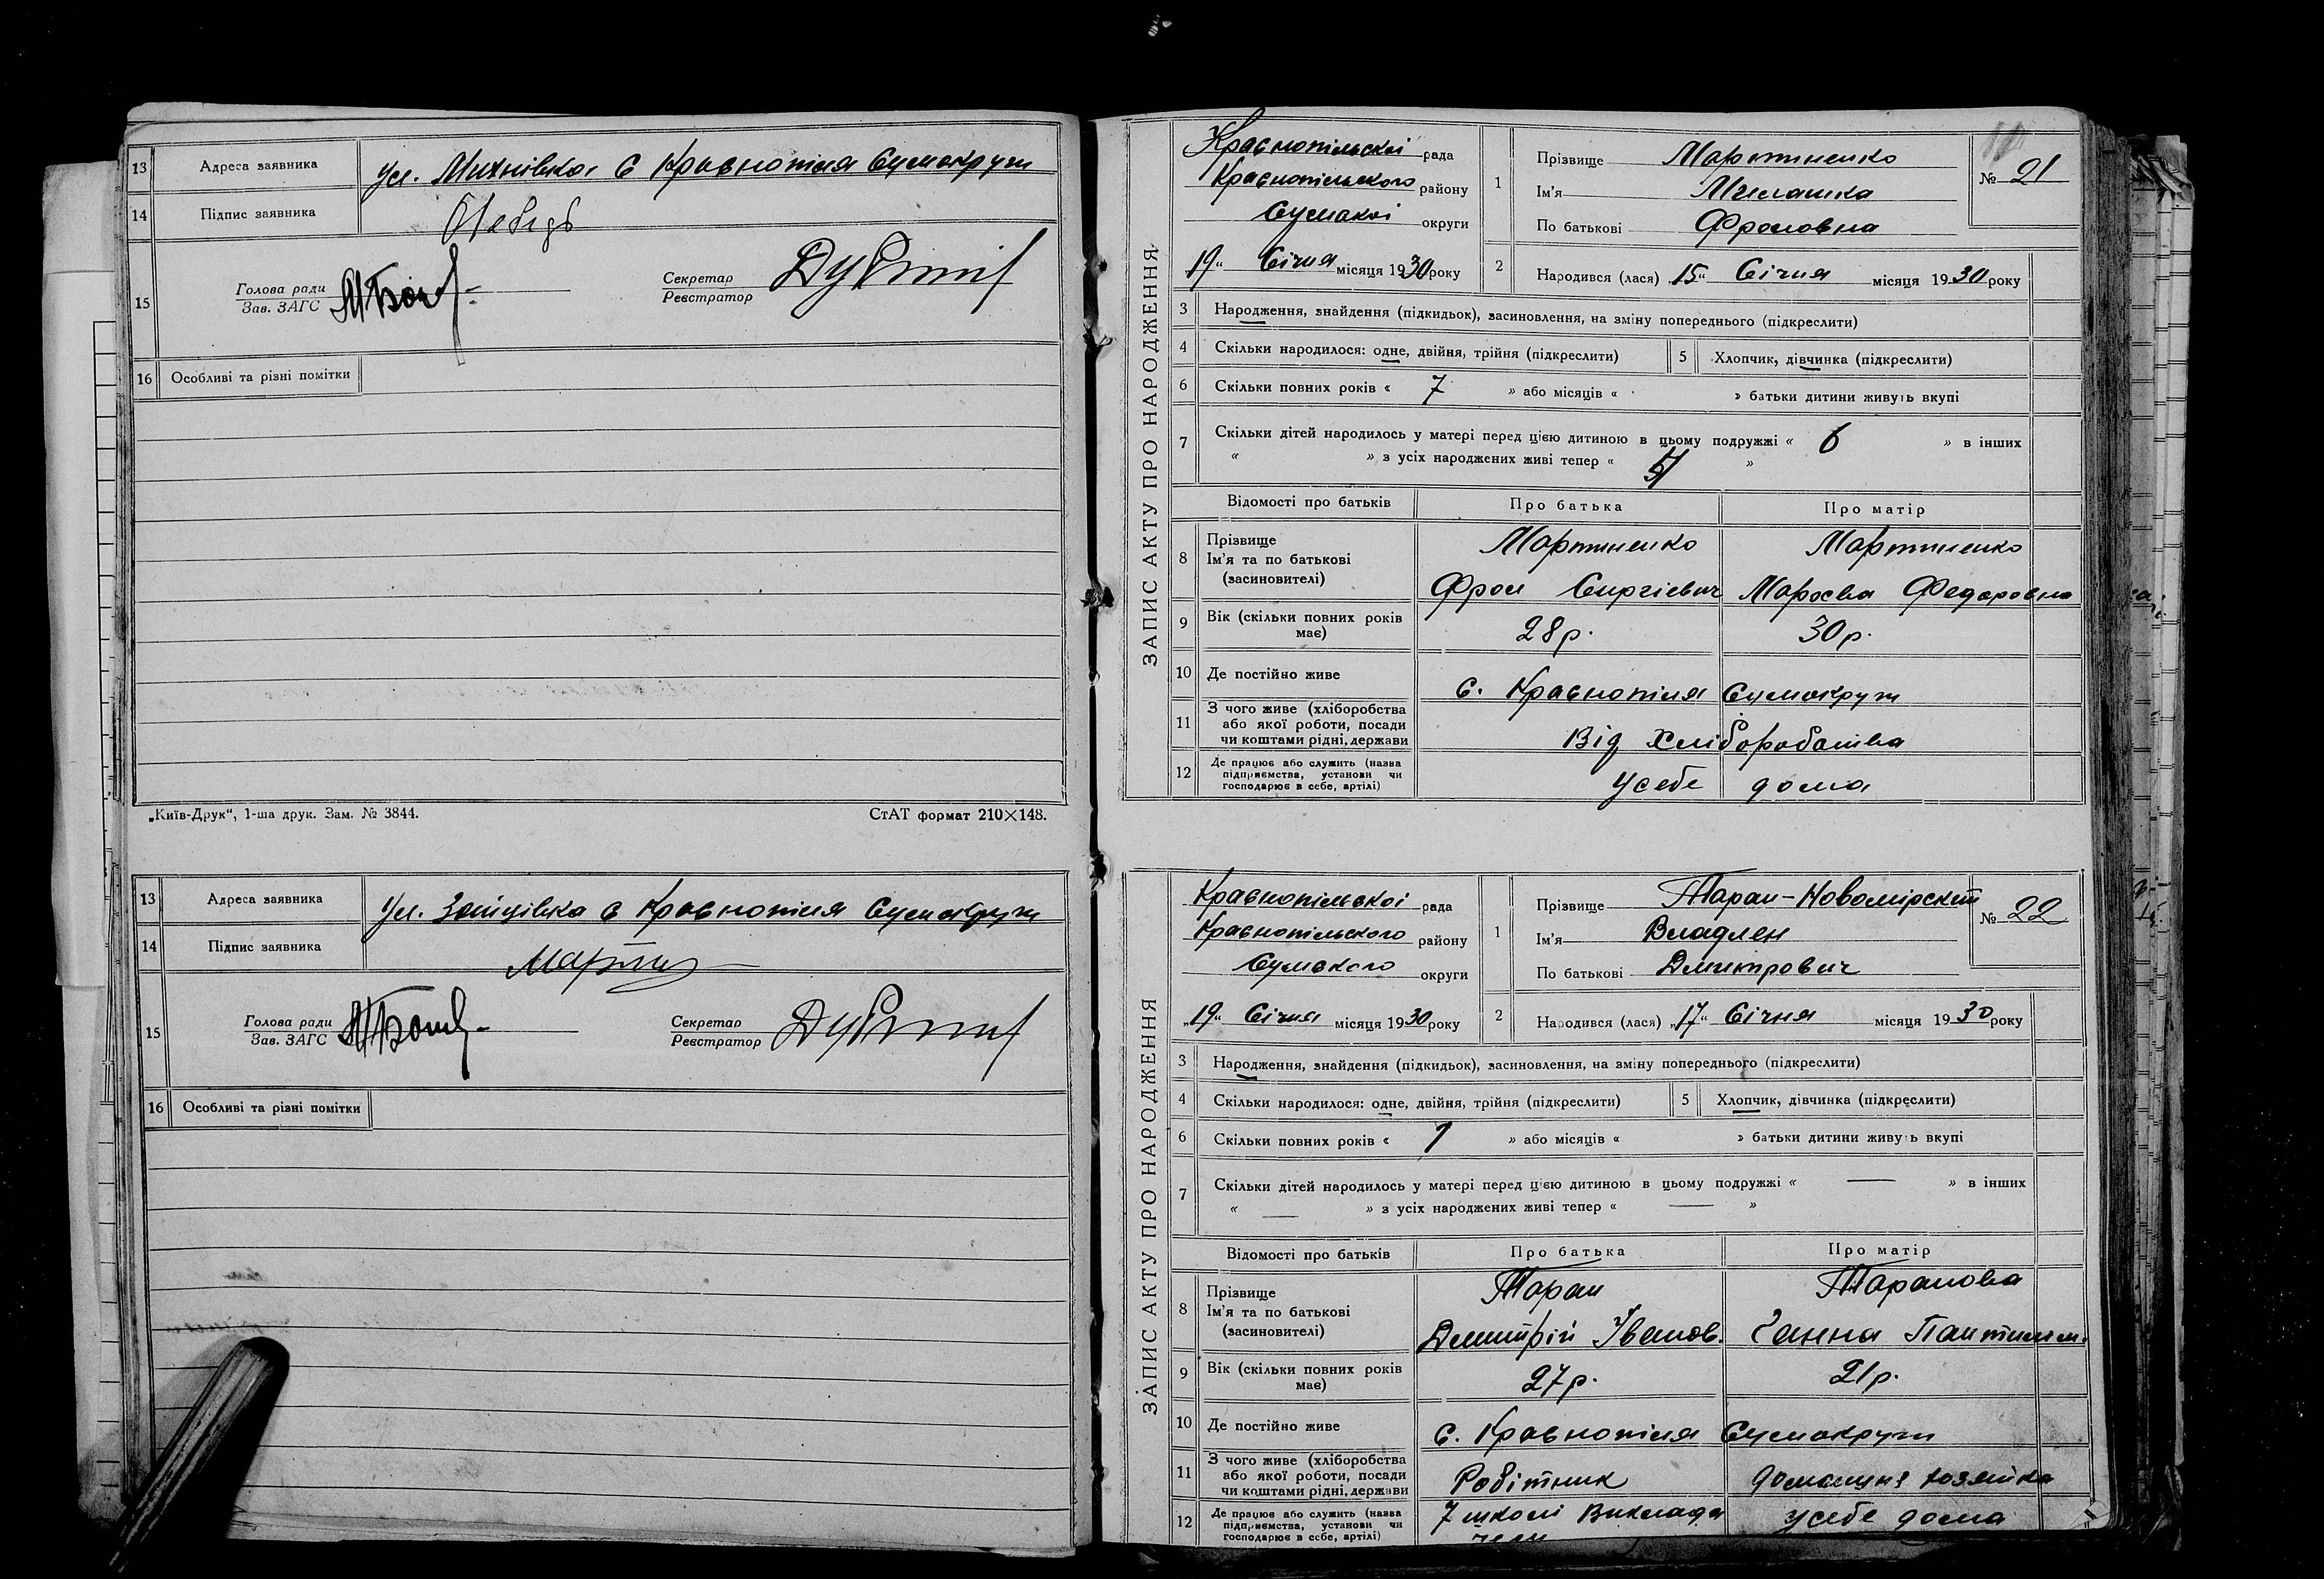 13 Адреса заявника ул. Михнівка, с Краснопілля Сумокруги
14 Підпис заявника Лебедь
15 Голова ради
Зав. ЗАГС
Секретар
Реєстратор
16 Особливі та різні помітки
„Київ-Друк“, 1-ша друк. Зам. № 3844. СтАТ формат 210×148.
13 Адреса заявника ул. Зайцівка с Краснопілля Сумокруги
14 Підпис заявника
15 Голова ради
Зав. ЗАГС
Секретар
Реєстратор
16 Особливі та різні помітки
ЗАПИС АКТУ ПРО НАРОДЖЕННЯ
Краснопільскої рада
Краснопільского району
округи
19 Січня місяця 1930 року
1 Прізвище Мартиненко
Ім'я Милашка
По батькові Фроловна
№ 21
2 Народився (лася) „15“ Січня місяця 1930 року
3 Народження, знайдення (підкидьок), засиновлення, на зміну попереднього (підкреслити)
4 Скільки народилося: одне, двійня, трійня (підкреслити) 5 Хлопчик, дівчинка (підкреслити)
6 Скільки повних років « 7 » або місяців « » батьки дитини живуть вкупі
7 Скільки дітей народилось у матері перед цією дитиною в цьому подружжі « 6 » в інших
« » з усіх народжених живі тепер « »
Відомості про батьків Про батька Про матір
8 Прізвище Мартиненко Мартиненко
Ім'я та по батькові
(засновителі) Фрол Сиргієвич Федоровна
9 Вік (скільки повних років має) 28 р. 30 р.
10 Де постійно живе с. Краснопілля Сумокруги
11 З чого живе (хліборобства
або якої роботи, посади
чи коштами рідні, держави Від Хліборобства
12 Де працює або служить (назва
підприємства, установи чи
господарює в себе, артілі) У себе дома
ЗАПИС АКТУ ПРО НАРОДЖЕННЯ
Краснопільскої рада
Краснопільского району
Сумского округи
„19“ Січня місяця 1930 року
1 Прізвище Таран-Новомірский
Ім'я Владлен
По батькові Дмитрович
№ 22
2 Народився (лася) „17“ Січня місяця 1930 року
3 Народження, знайдення (підкидьок), засиновлення, на зміну попереднього (підкреслити)
4 Скільки народилося: одне, двійня, трійня (підкреслити) 5 Хлопчик, дівчинка (підкреслити)
6 Скільки повних років « 1 » або місяців « » батьки дитини живуть вкупі
7 Скільки дітей народилось у матері перед цією дитиною в цьому подружжі « — » в інших
« — » з усіх народжених живі тепер « — »
Відомості про батьків Про батька Про матір
8 Прізвище Таран Таранова
Ім'я та по батькові
(засиновителі) Дмитрій Іванов. Ганна Пантилем.
9 Вік (скільки повних років має) 27 р. 21 р.
10 Де постійно живе с. Краснопілля Сумокруги
11 З чого живе (хліборобства
або якої роботи, посади
чи коштами рідні, держави Робітник домашня хозяйка
12 Де працює або служить (назва
підприємства, установи чи
господарює в себе, артілі) школі у себе дома